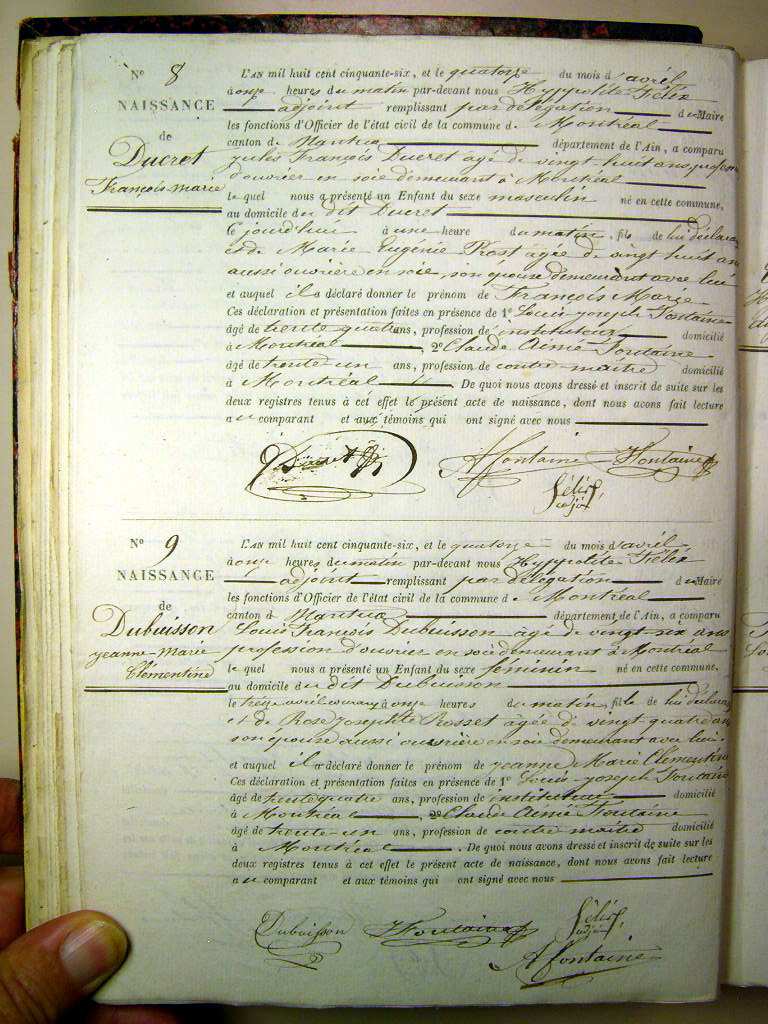 N° 8
NAISSANCE
de
Ducret
François-marie
L'AN mil huit cent cinquante-six, et le quatorze du mois d'avril
à onze heures du matin par-devant nous Hyppolite Félix
adjoint remplissant par délégation du Maire
les fonctions d'Officier de l'état civil de la commune de Montréal
canton de Nantua département de l'Ain, a comparu
Jules François Ducret âgé de vingt-huit ans, profession
d'ouvrier en soie demeurant à Montréal
lequel nous a présenté un Enfant du sexe masculin né en cette commune,
au domicile du dit Ducret
ce jourd'hui à une heure du matin, fils de lui déclarant
et de Marie Eugénie Prost âgée de vingt huit ans
aussi ouvrière en soie, son épouse demeurant avec lui
et auquel il a déclaré donner le prénom de François Marie
Ces déclaration et présentation faites en présence de 1° Louis-Joseph Fontaine
âgé de trente quatre ans, profession de instituteur domicilié
à Montréal, 2° Claude Aimé Fontaine
âgé de trente-un ans, profession de contre-maître domicilié
à Montréal. De quoi nous avons dressé et inscrit de suite sur les
deux registres tenus à cet effet le présent acte de naissance, dont nous avons fait lecture
au comparant et aux témoins qui ont signé avec nous
Ducret
A fontaine Fontaine
Félix
adjoint
N° 9
NAISSANCE
de
Dubuisson
Jeanne-Marie
Clémentine
L'AN mil huit cent cinquante-six, et le quatorze du mois d'avril
à onze heures du matin par-devant nous Hyppolite Félix
adjoint remplissant par délégation du Maire
les fonctions d'Officier de l'état civil de la commune de Montréal
canton de Nantua département de l'Ain, a comparu
Louis François Dubuisson âgé de vingt-six ans
profession d'ouvrier en soie demeurant à Montréal
lequel nous a présenté un Enfant du sexe féminin né en cette commune,
au domicile du dit Dubuisson
le treize avril courant à onze heures du matin, fille de lui déclarant
et de Rose Josephte Rosset âgée de vingt quatre ans
son épouse aussi ouvrière en soie demeurant avec lui
et auquel il a déclaré donner le prénom de Jeanne Marie Clémentine
Ces déclaration et présentation faites en présence de 1° Louis-Joseph Fontaine
âgé de trente quatre ans, profession de instituteur domicilié
à Montréal, 2° Claude Aimé Fontaine
âgé de trente-un ans, profession de contre maître domicilié
à Montréal. De quoi nous avons dressé et inscrit de suite sur les
deux registres tenus à cet effet le présent acte de naissance, dont nous avons fait lecture
au comparant et aux témoins qui ont signé avec nous
Dubuisson Fontaine Félix
adjoint
A fontaine